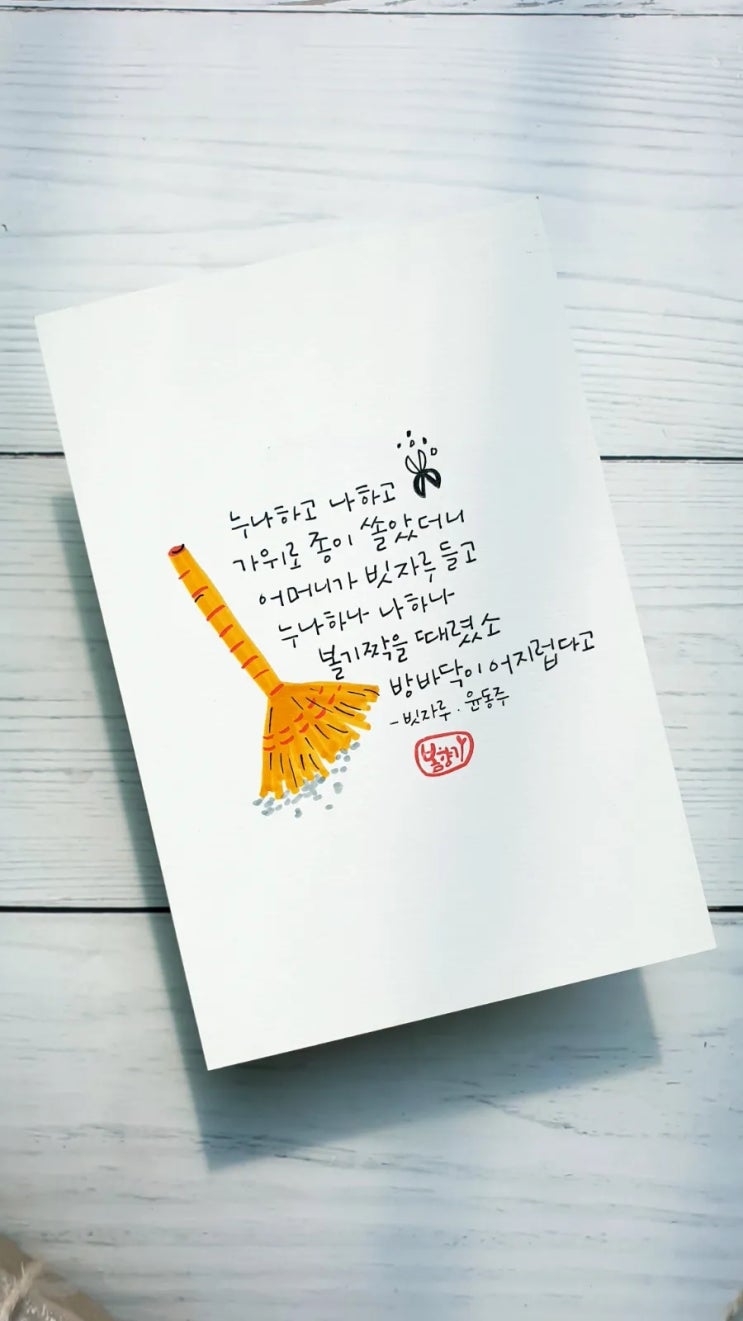 누나하고 나하고
가위로 종이 쏠았더니
어머니가 빗자루 들고
누나하나 나하나
볼기짝을 때렸소
방바닥이 어지럽다고
- 빗자루 . 윤동주
봄향기